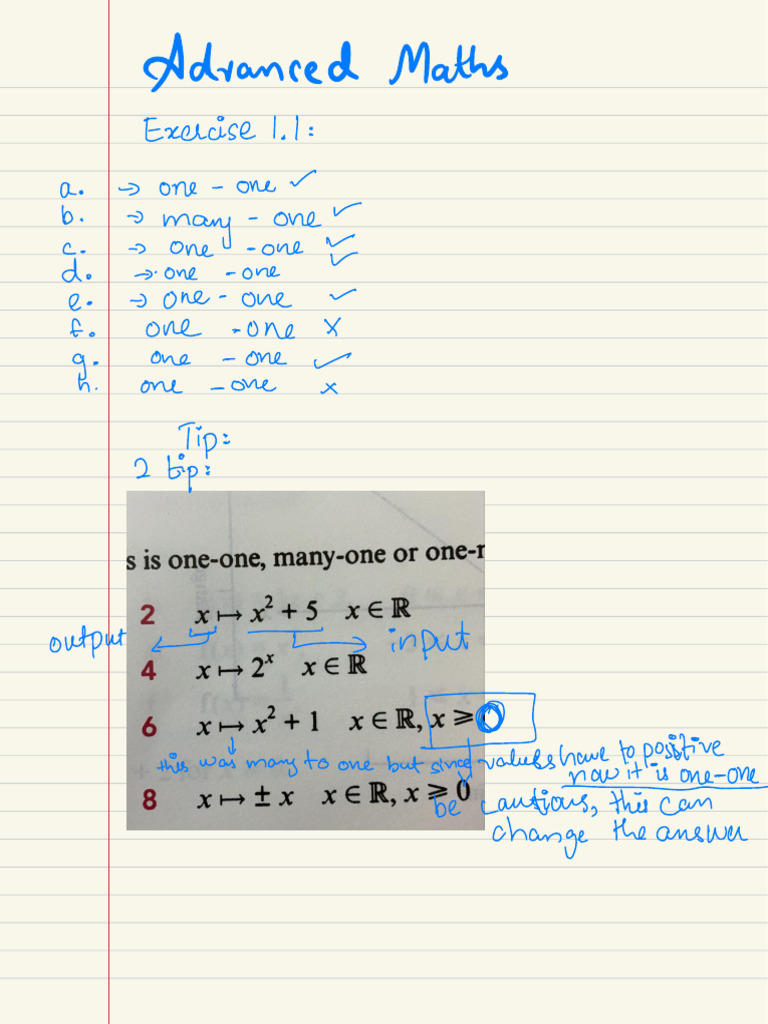 Advanced Maths
Exercise 1.1:
a. → one - one ✓
b. → many - one ✓
c. → one - one ✓
d. → one - one ✓
e. → one - one ✓
f. one - one ✗
g. one - one ✓
h. one - one ✗
Tip:
2 tip:
s is one-one, many-one or one-
2 x ↦ x² + 5 x ∈ ℝ
output input
4 x ↦ 2ˣ x ∈ ℝ
6 x ↦ x² + 1 x ∈ ℝ, x ⩾ 0
this was many to one but since values have to positive
now it is one-one
8 x ↦ ± x x ∈ ℝ, x ⩾ 0
be cautious, this can
change the answer